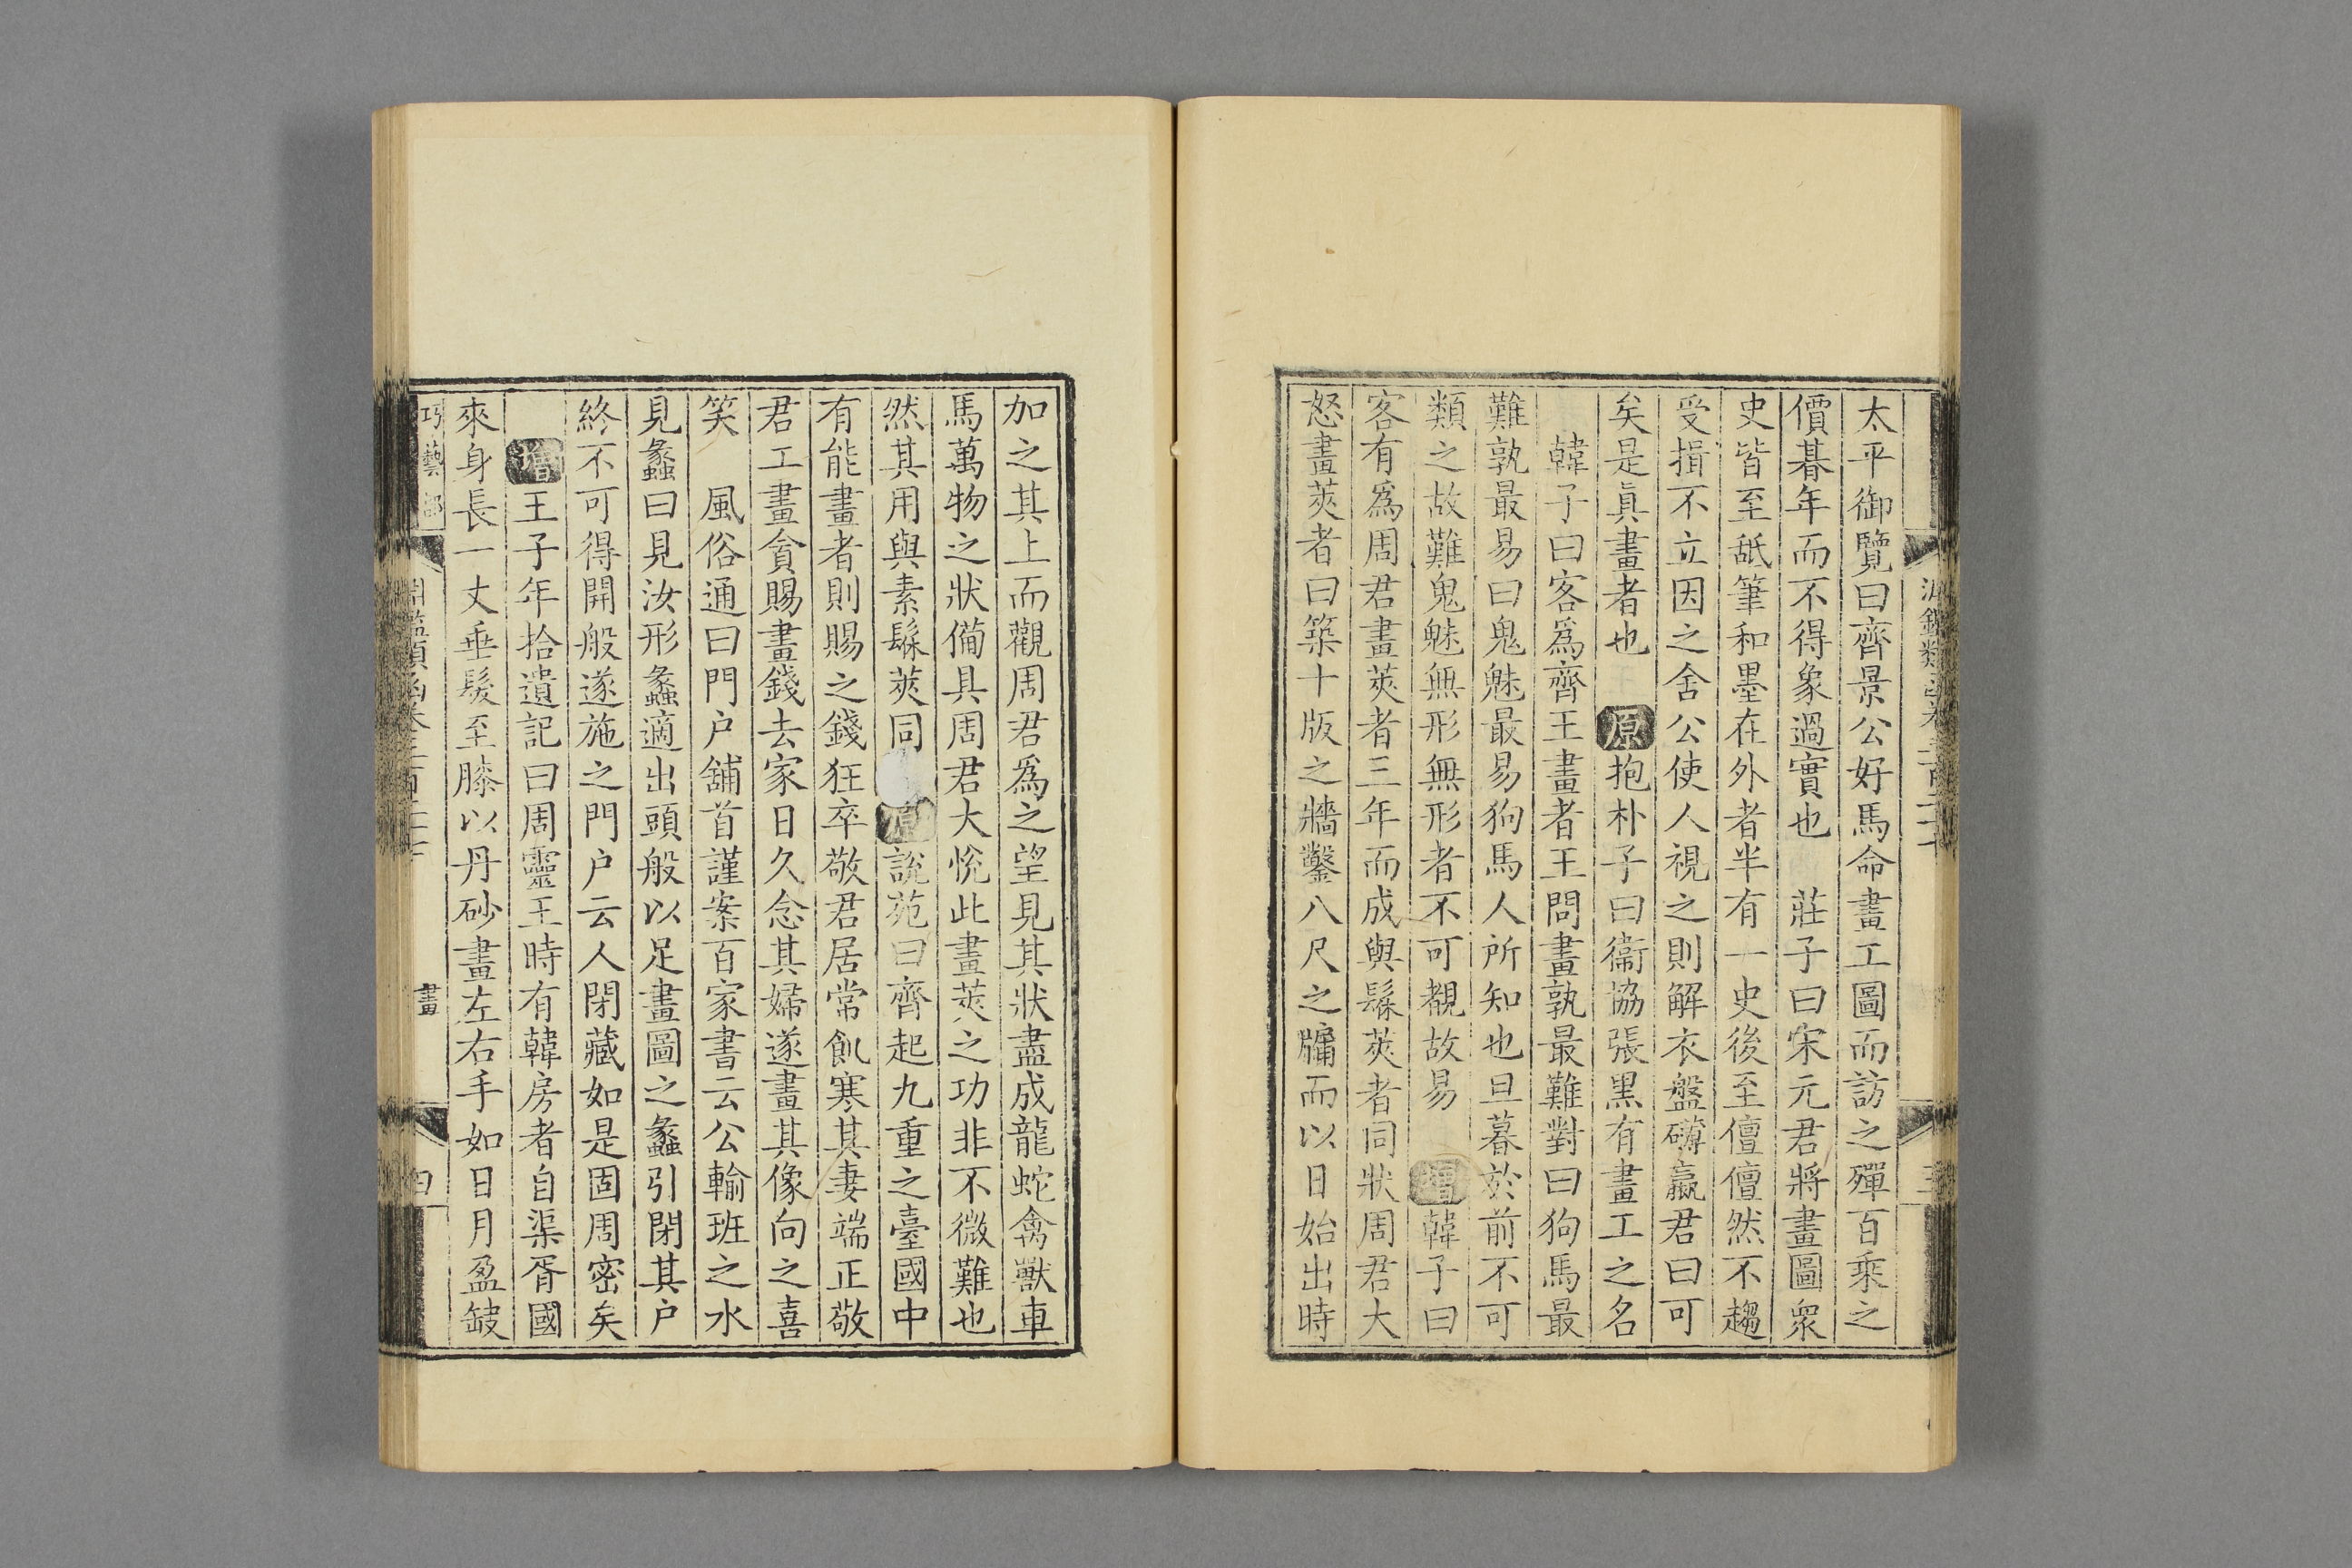 太平御覽曰齊景公好馬命畫工圖而訪之殫百乘之
價朞年而不得象過實也 莊子曰宋元君將畫圖衆
史皆至舐筆和墨在外者半有一史後至儃儃然不趨
受揖不立因之舍公使人視之則解衣盤礴臝君曰可
矣是眞畫者也 原抱朴子曰衞協張墨有畫工之名
韓子曰客爲齊王畫者王問畫孰最難對曰狗馬最
難孰最易曰鬼魅最易狗馬人所知也旦暮於前不可
類之故難鬼魅無形無形者不可覩故易 增韓子曰
客有爲周君畫莢者三年而成與髹莢者同狀周君大
怒畫莢者曰築十版之牆鑿八尺之牖而以日始出時
加之其上而觀周君爲之望見其狀盡成龍蛇禽獸車
馬萬物之狀備具周君大悅此畫莢之功非不微難也
然其用與素髹莢同 原說苑曰齊起九重之臺國中
有能畫者則賜之錢狂卒敬君居常飢寒其妻端正敬
君工畫貪賜畫錢去家日久念其婦遂畫其像向之喜
笑 風俗通曰門户舖首謹案百家書云公輸班之水
見蠡曰見汝形蠡適出頭般以足畫圖之蠡引閉其户
終不可得開般遂施之門户云人閉藏如是固周密矣
增王子年拾遺記曰周靈王時有韓房者自渠胥國
來身長一丈垂髮至膝以丹砂畫左右手如日月盈缺
巧藝部
畫
四